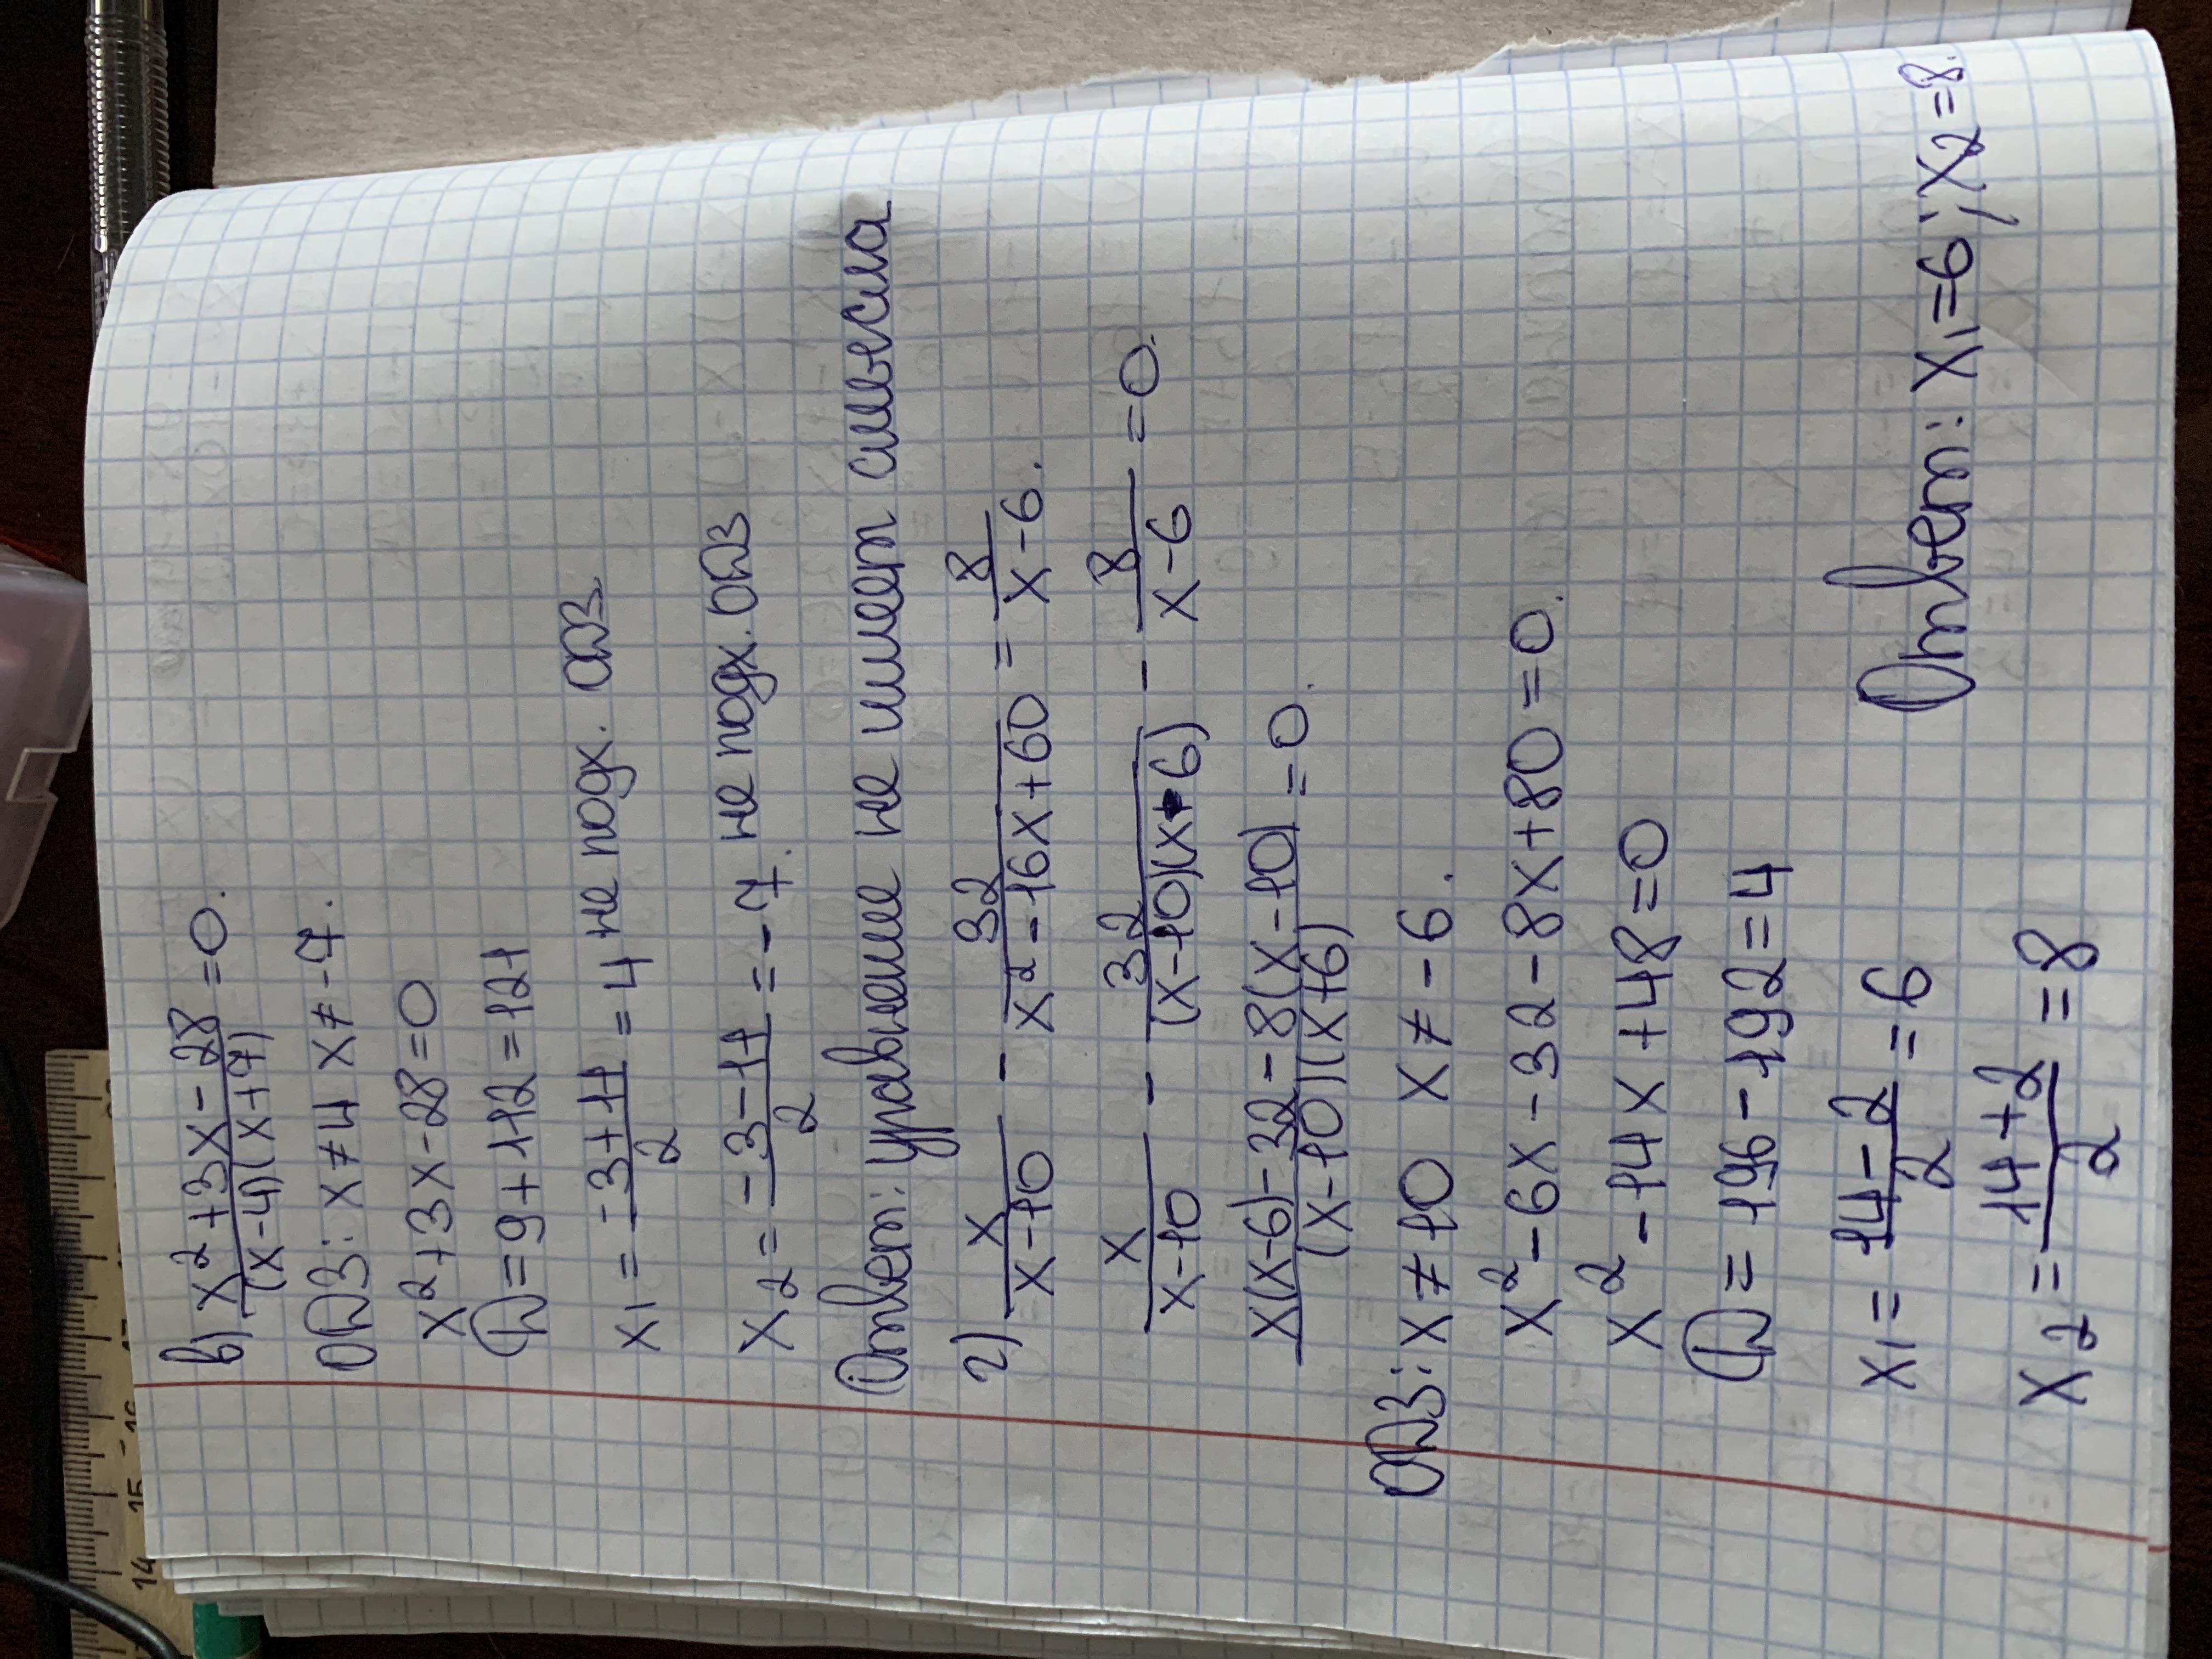 в) (x²+3x-28)/((x-4)(x+7)) =0.
ОДЗ: x≠4 x≠-7.
x²+3x-28=0
D=9+112=121
x₁ = (-3+11)/2 = 4 не подх. ОДЗ
x₂ = (-3-11)/2 = -7. не подх. ОДЗ
Ответ: уравнение не имеет смысла
г) x/(x-10) - 32/(x²-16x+60) = 8/(x-6).
x/(x-10) - 32/((x-10)(x-6)) - 8/(x-6) =0.
(x(x-6)-32-8(x-10))/((x-10)(x+6)) =0.
ОДЗ: x≠10 x≠-6.
x²-6x-32-8x+80=0.
x²-14x+48=0
D=196-192=4
x₁ = (14-2)/2 = 6
x₂ = (14+2)/2 = 8
Ответ: x₁=6; x₂=8.
14 15 16 17